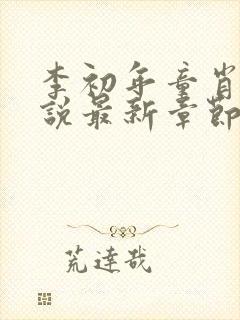 李初年童肖
說最新章節
荒達哉